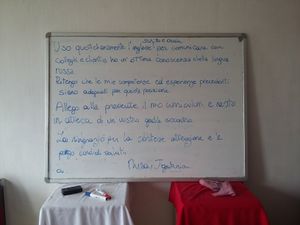 Uso quotidianamente l'inglese per comunicare con
colleghi e clienti e ho un'ottima conoscenza della lingua
russa.
Ritengo che le mie competenze ed esperienze precedenti
siano adeguati per questa posizione.
Allego alla presente il mio curriculum e resto
in attesa di un vostro gentile
La ringrazio per la cortese attenzione e le
porgo cordiali saluti.